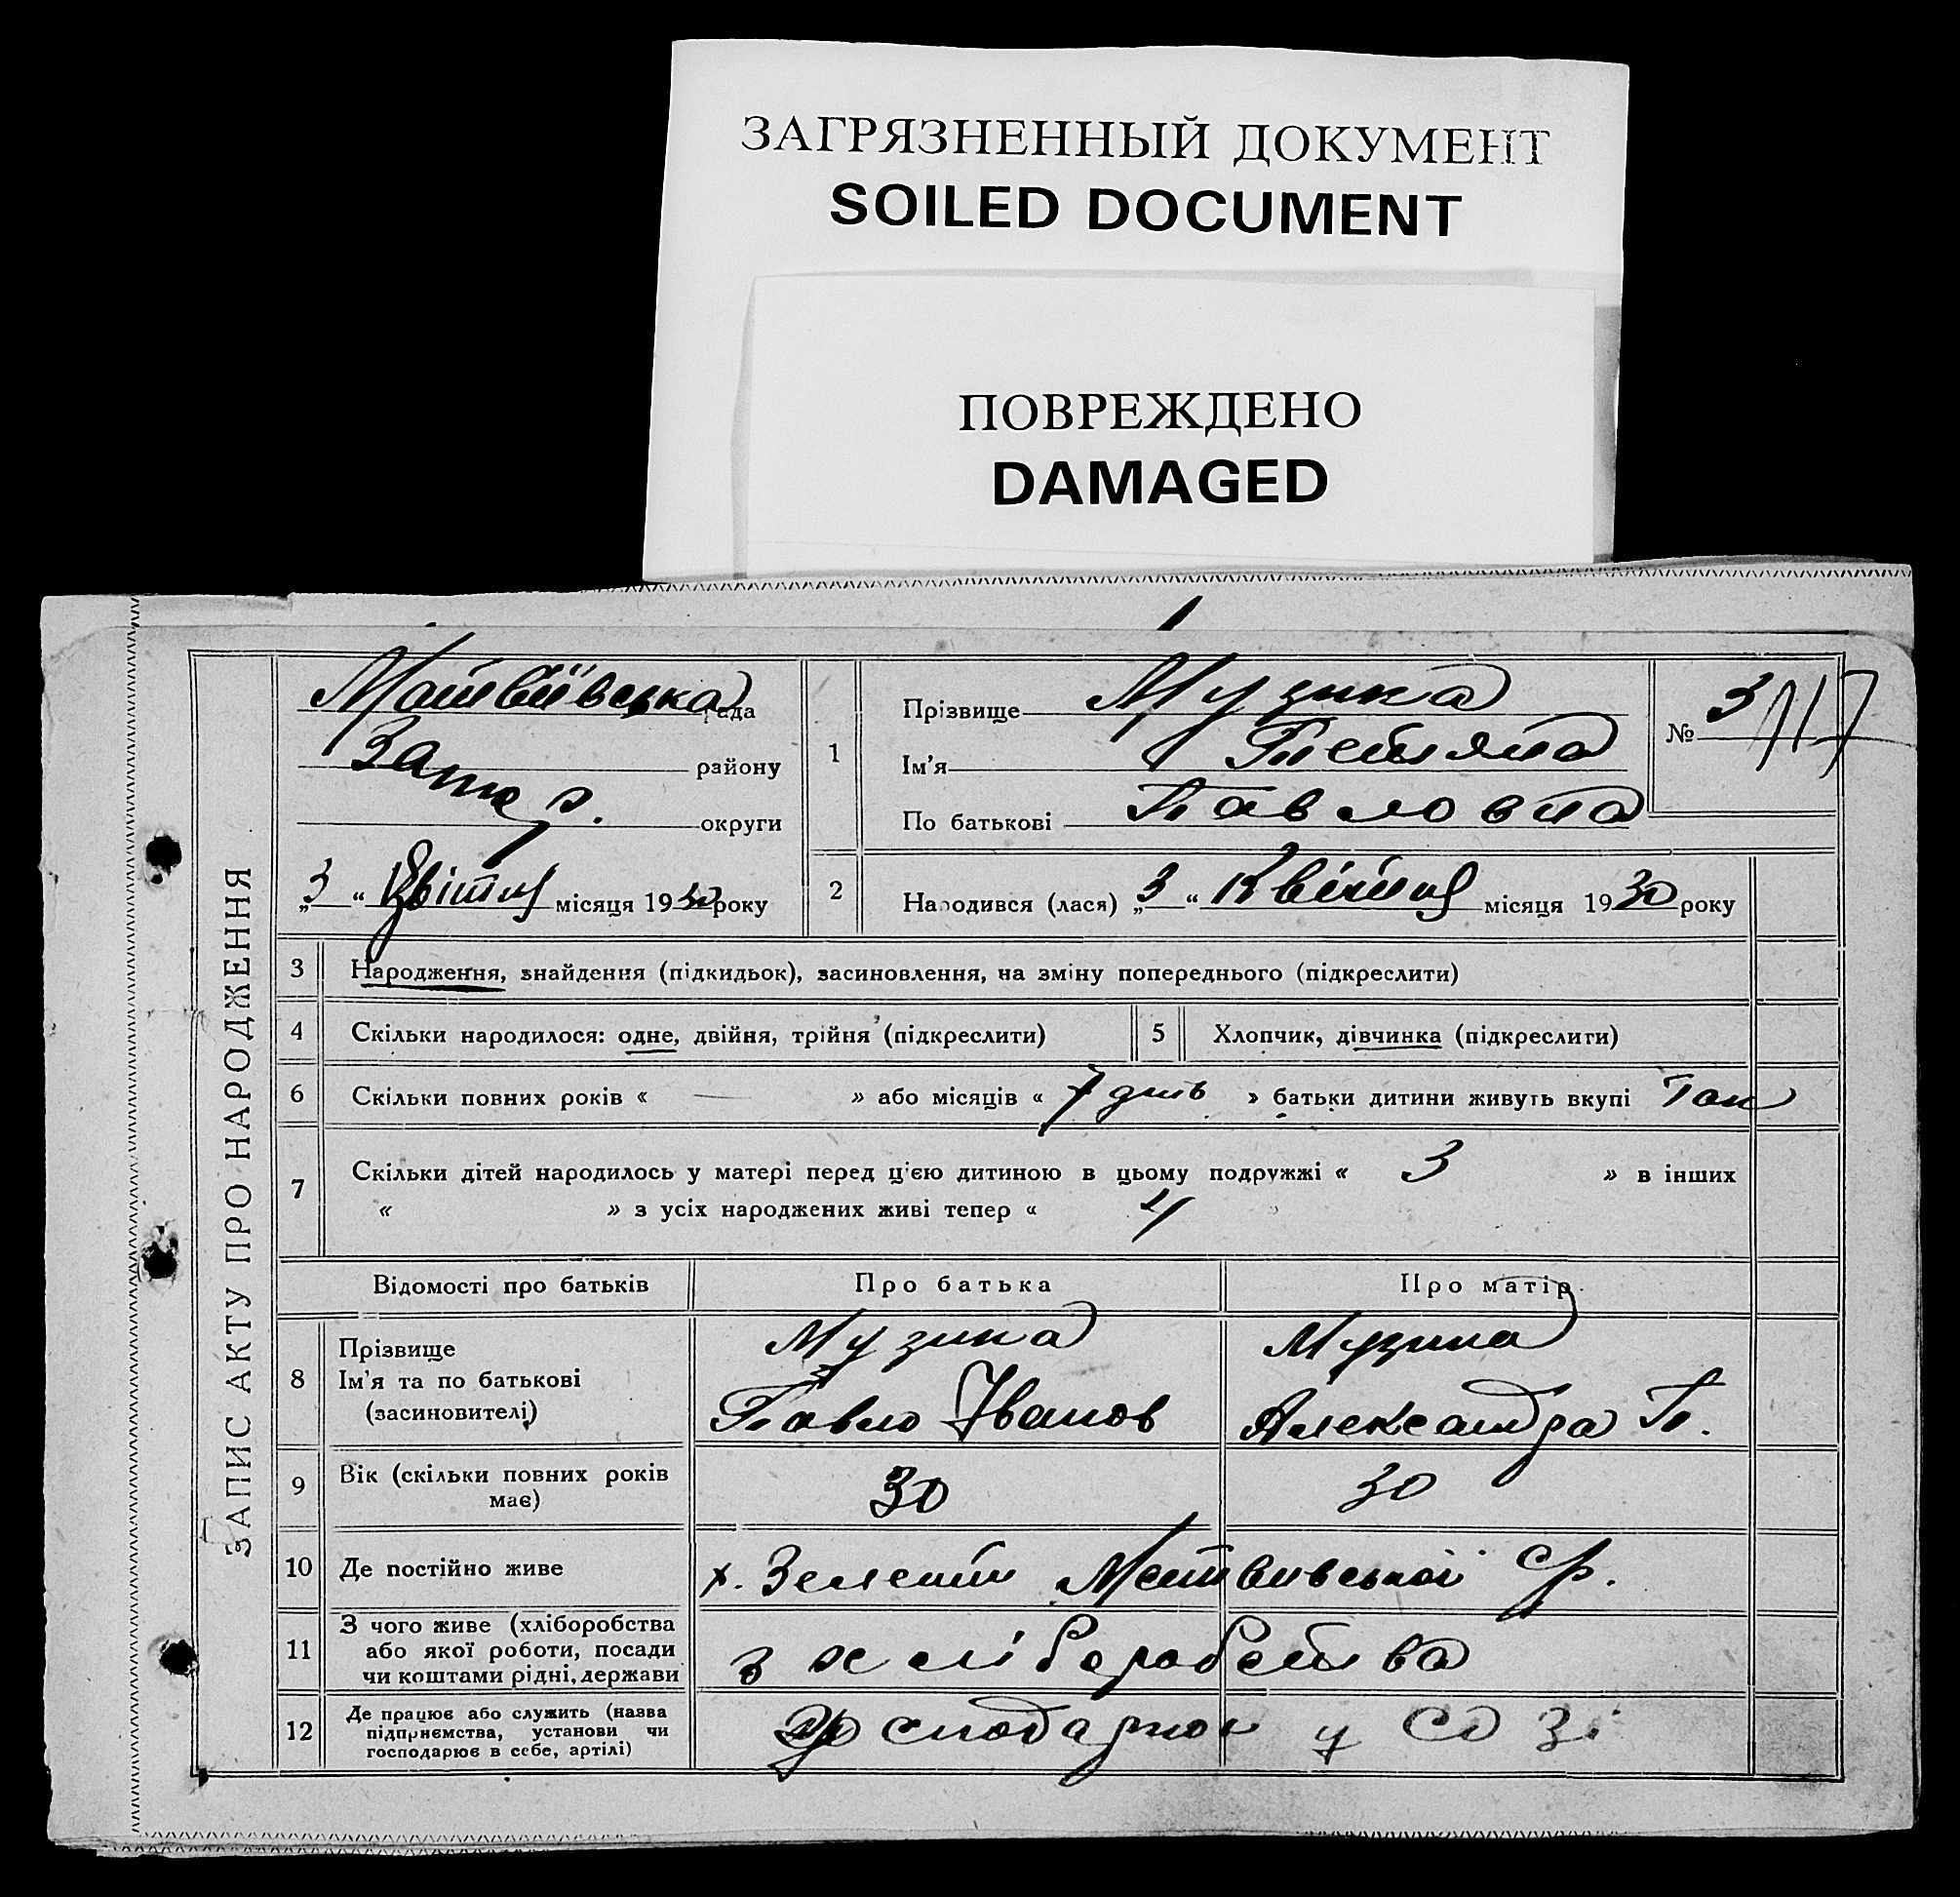 ЗАГРЯЗНЕННЫЙ ДОКУМЕНТ
SOILED DOCUMENT
ПОВРЕЖДЕНО
DAMAGED
ЗАПИС АКТУ ПРО НАРОДЖЕННЯ
Матвіївська рада
Запор. району
округи
„3“ Квітня місяця 1930 року
1
Прізвище Музика
Ім'я Тетяна
По батькові Павловна
№ 3/117
2 Народився (лася) „3“ Квітня місяця 1930 року
3 Народження, знайдення (підкидьок), засиновлення, на зміну попереднього (підкреслити)
4 Скільки народилося: одне, двійня, трійня (підкреслити)
5 Хлопчик, дівчинка (підкреслити)
6 Скільки повних років « — » або місяців « 7 » батьки дитини живуть вкупі Так
7 Скільки дітей народилось у матері перед цією дитиною в цьому подружжі « 3 » в інших
« » з усіх народжених живі тепер « 4 »
Відомості про батьків Про батька Про матір
8 Прізвище Ім'я та по батькові (засиновителі)
Музика Музика
Павло Іванов Александра П.
9 Вік (скільки повних років має) 30 30
10 Де постійно живе х. Зелений Матвивської с/р.
11 З чого живе (хліборобства або якої роботи, посади чи коштами рідні, держави
з хліборобства
12 Де працює або служить (назва підприємства, установи чи господарює в себе, артілі)
у СОЗі